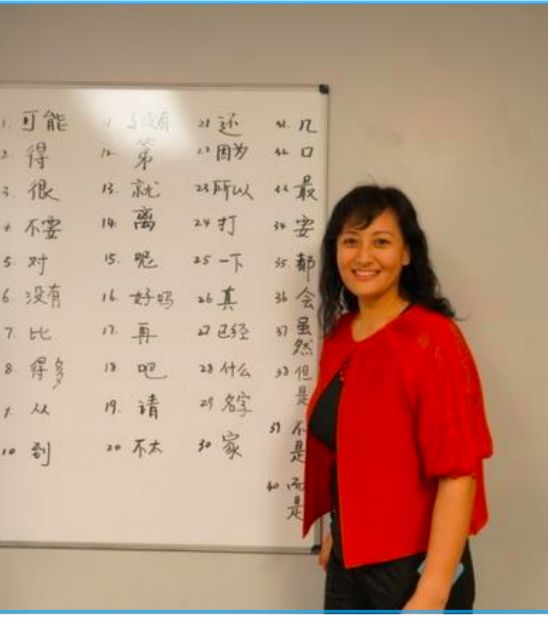 1. 可能
2. 得
3. 很
4. 不要
5. 对
6. 没有
7. 比
8. 得多
9. 从
10 到
12. 第
13. 就
14. 离
15. 呢
16. 好吗
17. 再
18. 吧
19. 请
20 不太
21 还
22 因为
23 所以
24 打
25 一下
26 真
27 已经
28 什么
29 名字
30 家
几
口
最
34 安
35. 都
36 会
37 虽然
38 但是
39 不是
40 而是